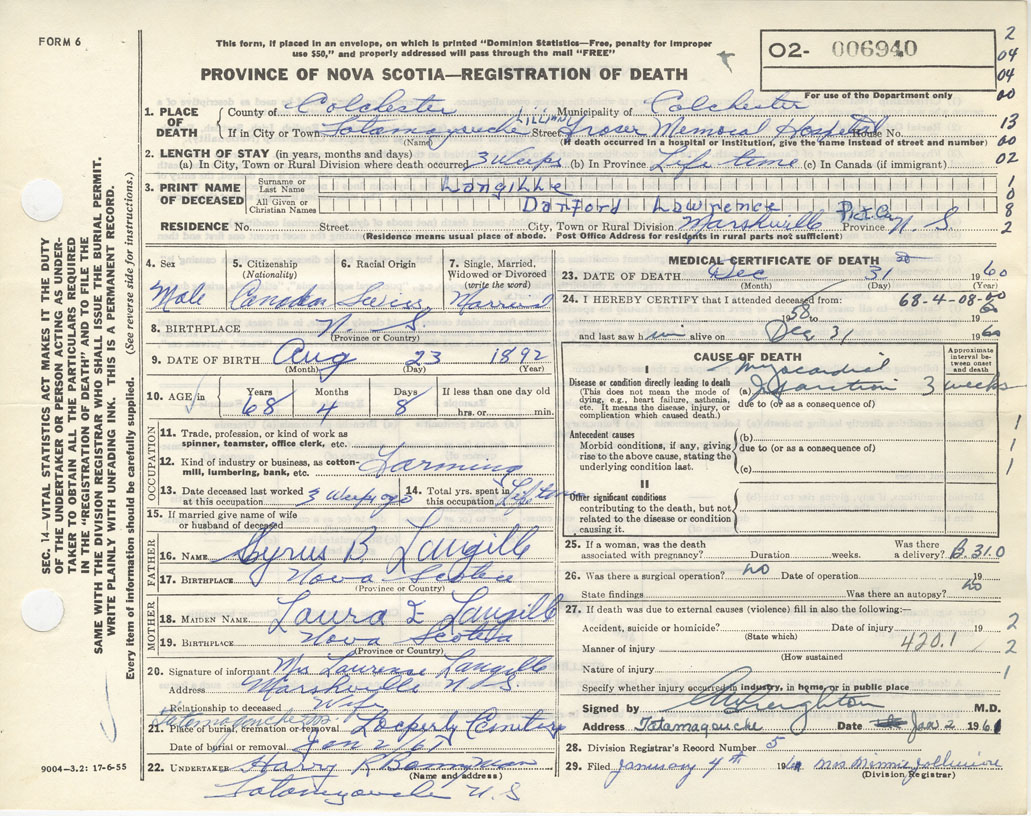 FORM 6
This form, if placed in an envelope, on which is printed "Dominion Statistics—Free, penalty for improper
use $50," and properly addressed will pass through the mail "FREE"
PROVINCE OF NOVA SCOTIA—REGISTRATION OF DEATH
O2- 006940
For use of the Department only
2
04
04
00
13
00
02
1
0
8
2
SEC. 14—VITAL STATISTICS ACT MAKES IT THE DUTY
OF THE UNDERTAKER OR PERSON ACTING AS UNDER-
TAKER TO OBTAIN ALL THE PARTICULARS REQUIRED
IN THE REGISTRATION OF DEATH AND FILE THE
SAME WITH THE DIVISION REGISTRAR WHO SHALL ISSUE THE BURIAL PERMIT.
WRITE PLAINLY WITH UNFADING INK. THIS IS A PERMANENT RECORD.
Every item of information should be carefully supplied. (See reverse side for instructions.)
1. PLACE OF DEATH
County of Colchester Municipality of Colchester
If in City or Town Tatamagouche Street Lillian Fraser Memorial Hospital House No.
(Name) (If death occurred in a hospital or institution, give the name instead of street and number)
2. LENGTH OF STAY (in years, months and days)
(a) In City, Town or Rural Division where death occurred 3 Weeks (b) In Province Life time (c) In Canada (if immigrant)
3. PRINT NAME OF DECEASED
Surname or Last Name Langille
All Given or Christian Names Danford Lawrence
RESIDENCE No. Street City, Town or Rural Division Marshville Pict Co Province N. S.
(Residence means usual place of abode. Post Office Address for residents in rural parts not sufficient)
4. Sex Male
5. Citizenship (Nationality) Canadian
6. Racial Origin Swiss
7. Single, Married, Widowed or Divorced (write the word) Married
8. BIRTHPLACE N. S.
(Province or Country)
9. DATE OF BIRTH Aug 23 1892
(Month) (Day) (Year)
10. AGE Years 68 Months 4 Days 8 If less than one day old hrs. or min.
OCCUPATION
11. Trade, profession, or kind of work as
spinner, teamster, office clerk, etc.
12. Kind of industry or business, as cotton-
mill, lumbering, bank, etc. Farming
13. Date deceased last worked
at this occupation 3 Weeks ago
14. Total yrs. spent in
this occupation Lifetime
15. If married give name of wife
or husband of deceased
FATHER
16. NAME Cyrus B Langille
17. BIRTHPLACE Nova Scotia
(Province or Country)
MOTHER
18. MAIDEN NAME Laura E Langille
19. BIRTHPLACE Nova Scotia
(Province or Country)
20. Signature of informant Mrs Laurence Langille
Address Marshville N S
Relationship to deceased Wife
21. Place of burial, cremation or removal Cemetery
Date of burial or removal Jan 2/61
22. UNDERTAKER Harry R
(Name and address)
Tatamagouche N. S
9004—3.2: 17-6-55
MEDICAL CERTIFICATE OF DEATH
23. DATE OF DEATH Dec 31 1960
(Month) (Day)
24. I HEREBY CERTIFY that I attended deceased from: 68-4-08-00
1958 60
and last saw him alive on Dec 31 1960
CAUSE OF DEATH
Approximate interval between onset and death
I
Disease or condition directly leading to death
(This does not mean the mode of
dying, e.g., heart failure, asthenia,
etc. It means the disease, injury, or
complication which caused death.)
(a) Myocardial Infarction 3 weeks
due to (or as a consequence of)
Antecedent causes
Morbid conditions, if any, giving
rise to the above cause, stating the
underlying condition last.
(b)
due to (or as a consequence of)
(c)
1
1
1
II
Other significant conditions
contributing to the death, but not
related to the disease or condition
causing it.
25. If a woman, was the death
associated with pregnancy? Duration weeks. Was there a delivery? B.310
26. Was there a surgical operation? no Date of operation 19
State findings Was there an autopsy? no
27. If death was due to external causes (violence) fill in also the following:—
Accident, suicide or homicide? Date of injury 19 2
(State which)
Manner of injury 420.1 2
(How sustained
Nature of injury 1
Specify whether injury occurred in industry, in home, or in public place
Signed by Creighton M.D.
Address Tatamagouche Date Jan 2 1961
28. Division Registrar's Record Number 5
29. Filed January 4th 1961 Mrs Minnie
(Division Registrar)